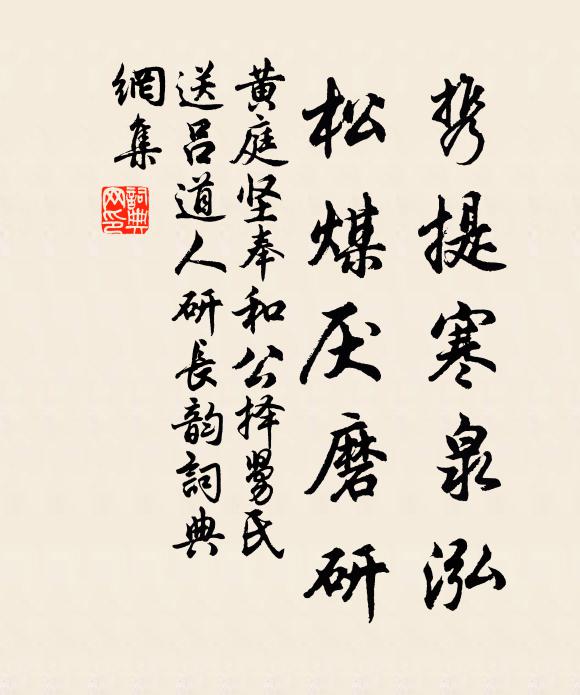 携提寒泉泓
松煤厌磨研
黄庭坚奉和公择舅氏
送吕道人研长韵詞典
網集
詞典网印